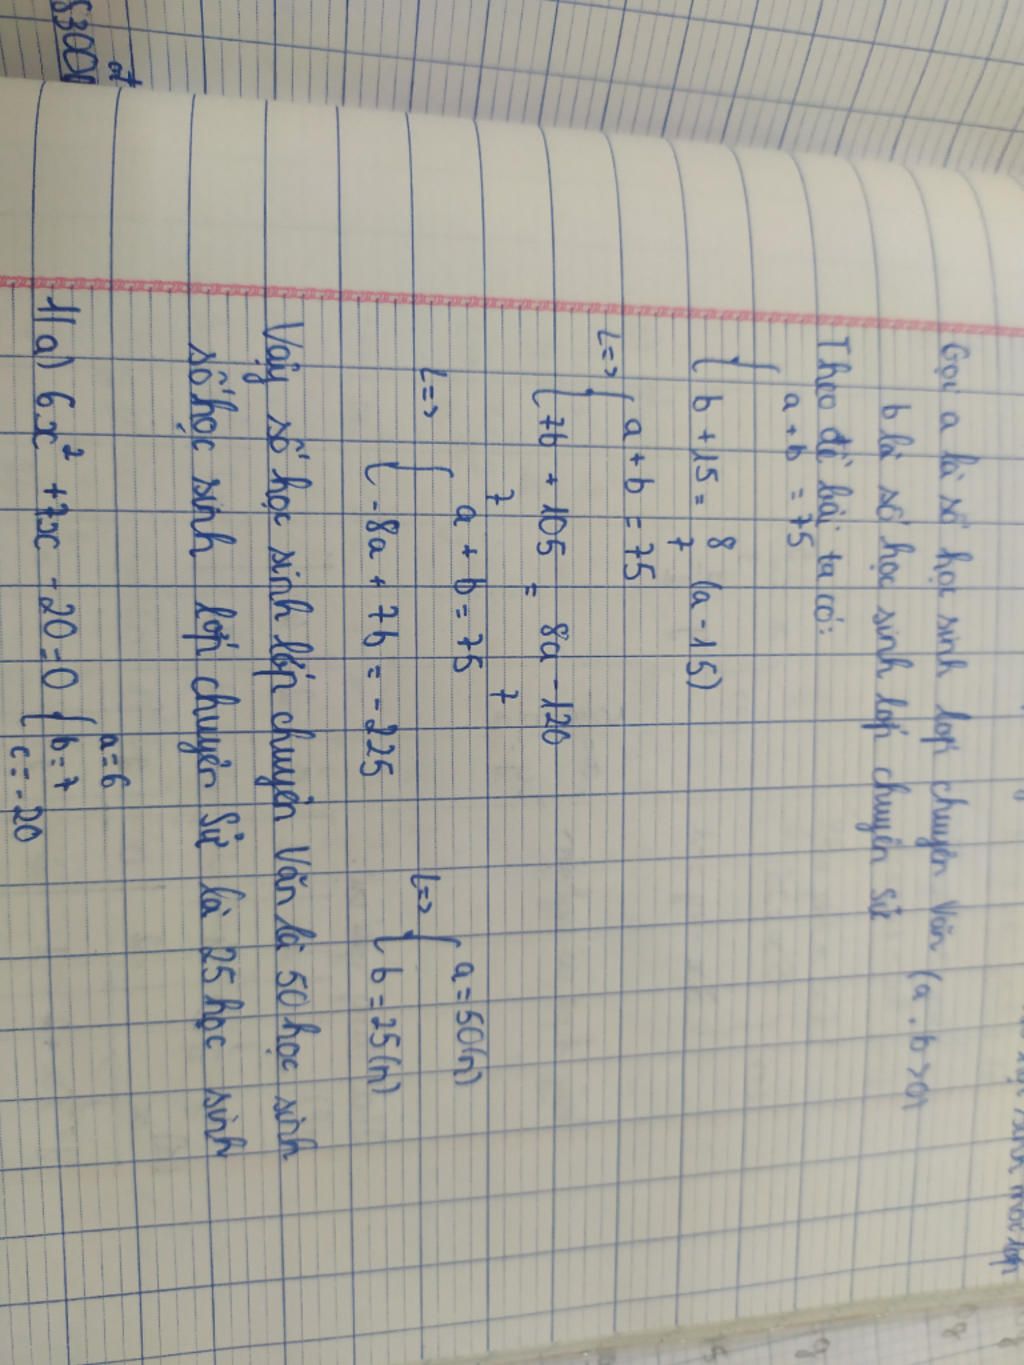 Gọi a là số học sinh lớp chuyên Văn (a, b > 0)
b là số học sinh lớp chuyên Sử
Theo đề bài ta có:
{ a + b = 75
{ b + 15 = 8/7 (a - 15)
<=> { a + b = 75
{ 7b + 105 = 8a - 120
7 7
<=> { a + b = 75 <=> { a = 50(n)
{ -8a + 7b = -225 { b = 25(n)
Vậy số học sinh lớp chuyên Văn là 50 học sinh
số học sinh lớp chuyên Sử là 25 học sinh
1/a) 6x² + 7x - 20 = 0 { a = 6
b = 7
c = -20